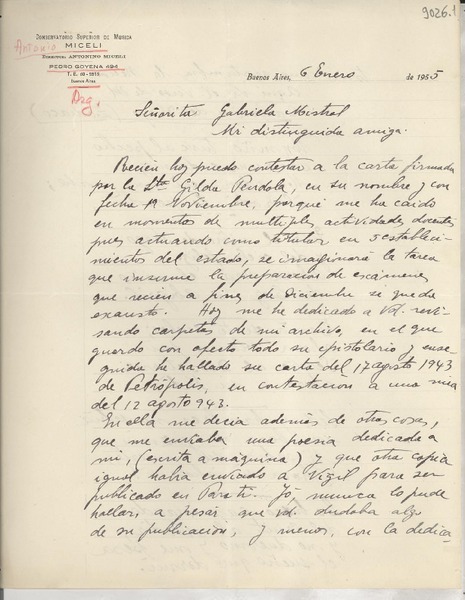 9026.1
CONSERVATORIO SUPERIOR DE MÚSICA
Antonio
MICELI
DIRECTOR: ANTONINO MICELI
PEDRO GOYENA 494
T. E. 60 - 1816
BUENOS AIRES
Arg.
Buenos Aires, 6 Enero de 1955
Señorita Gabriela Mistral
Mi distinguida amiga.
Recien hoy puedo contestar a la carta firmada
por la Sta Gilda Pendola, en su nombre y con
fecha 1º Noviembre, porqué me ha caido
en momentos de multiples actividades docentes
pues actuando como titular en 5 estableci-
mientos del estado, se imaginará la tarea
que insume la preparacion de exámenes
que recien a fines de Diciembre se queda
exausto. Hoy me he dedicado a Vd. revi-
sando carpetas de mi archivo, en el que
guardo con afecto todo su epistolario y ense-
guida he hallado su carta del 17 agosto 1943
de Petrópolis, en contestacion a una mia
del 12 agosto 943.
En ella me decia además de otras cosas,
que me enviaba una poesia dedicada a
mi, (escrita a máquina) y que otra copia
igual habia enviado a Vigil para ser
publicado en Para ti. Yó, nunca la pude
hallar, a pesar que vd. dudaba algo
de su publicacion, y menos, con la dedica-